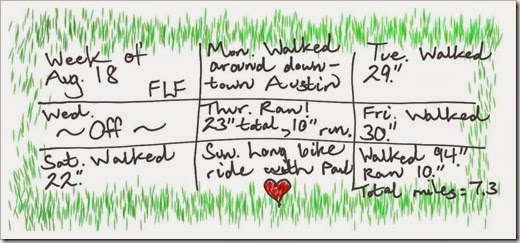 Week of
Aug. 18
FLF
Mon. Walked
around down-
town Austin
Tue. Walked
29."
Wed.
~ Off ~
Thur. Ran!
23" total, 10" run.
Fri. Walked
30."
Sat. Walked
22."
Sun. Long bike
ride with Paul
Walked 94."
Ran 10."
Total miles = 7.3